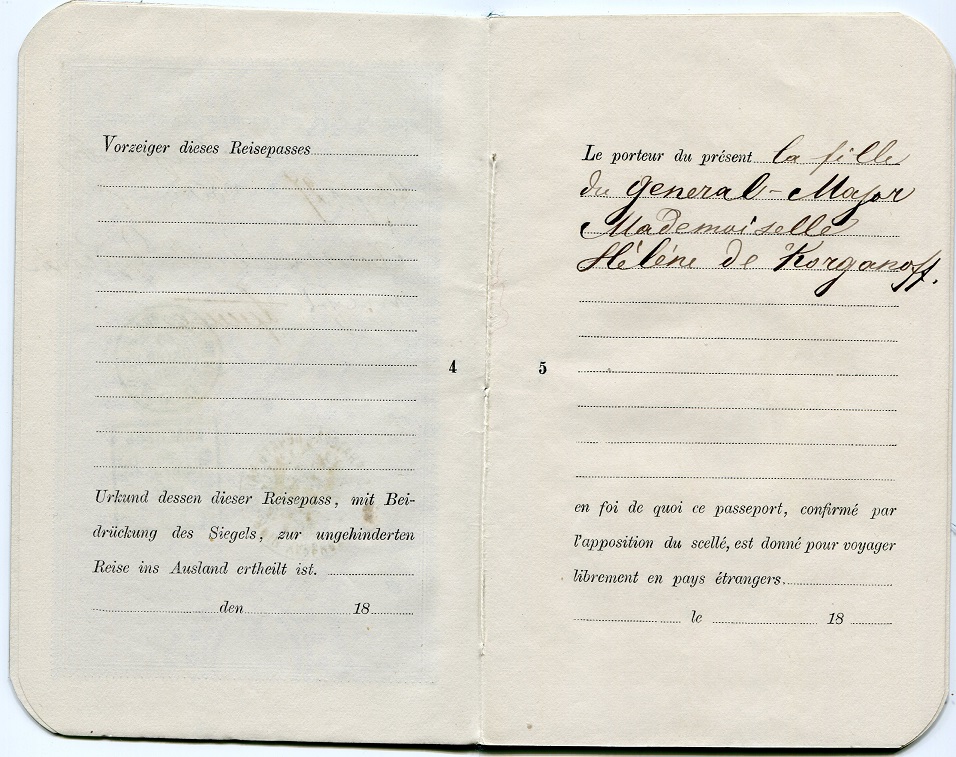 Vorzeiger dieses Reisepasses
4
Urkund dessen dieser Reisepass, mit Bei-
drückung des Siegels, zur ungehinderten
Reise ins Ausland ertheilt ist.
den 18
Le porteur du présent la fille
du general-Major
Mademoiselle
Hélène de Korganoff.
5
en foi de quoi ce passeport, confirmé par
l'apposition du scellé, est donné pour voyager
librement en pays étrangers.
le 18